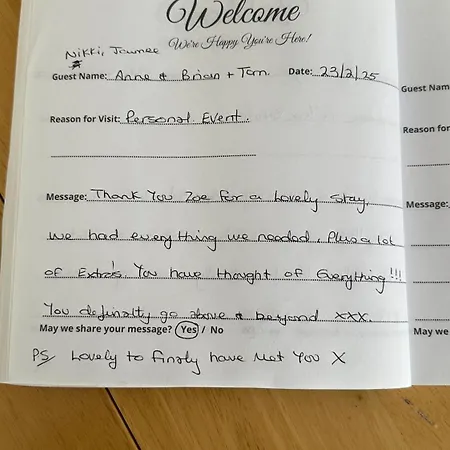 Welcome
We're Happy You're Here!
Nikki, Joumee
Guest Name: Anne & Brian + Tom. Date: 23/2/25
Reason for Visit: Personal Event.
Message: Thank You Zoe for a lovely stay.
we had everything we needed. Plus a lot
of Extra's You have thought of Everything!!!
You definatly go above & beyond xxx.
May we share your message? Yes / No
PS/ Lovely to finaly have Met You X
Guest Nam
Reason for
Message:
May we